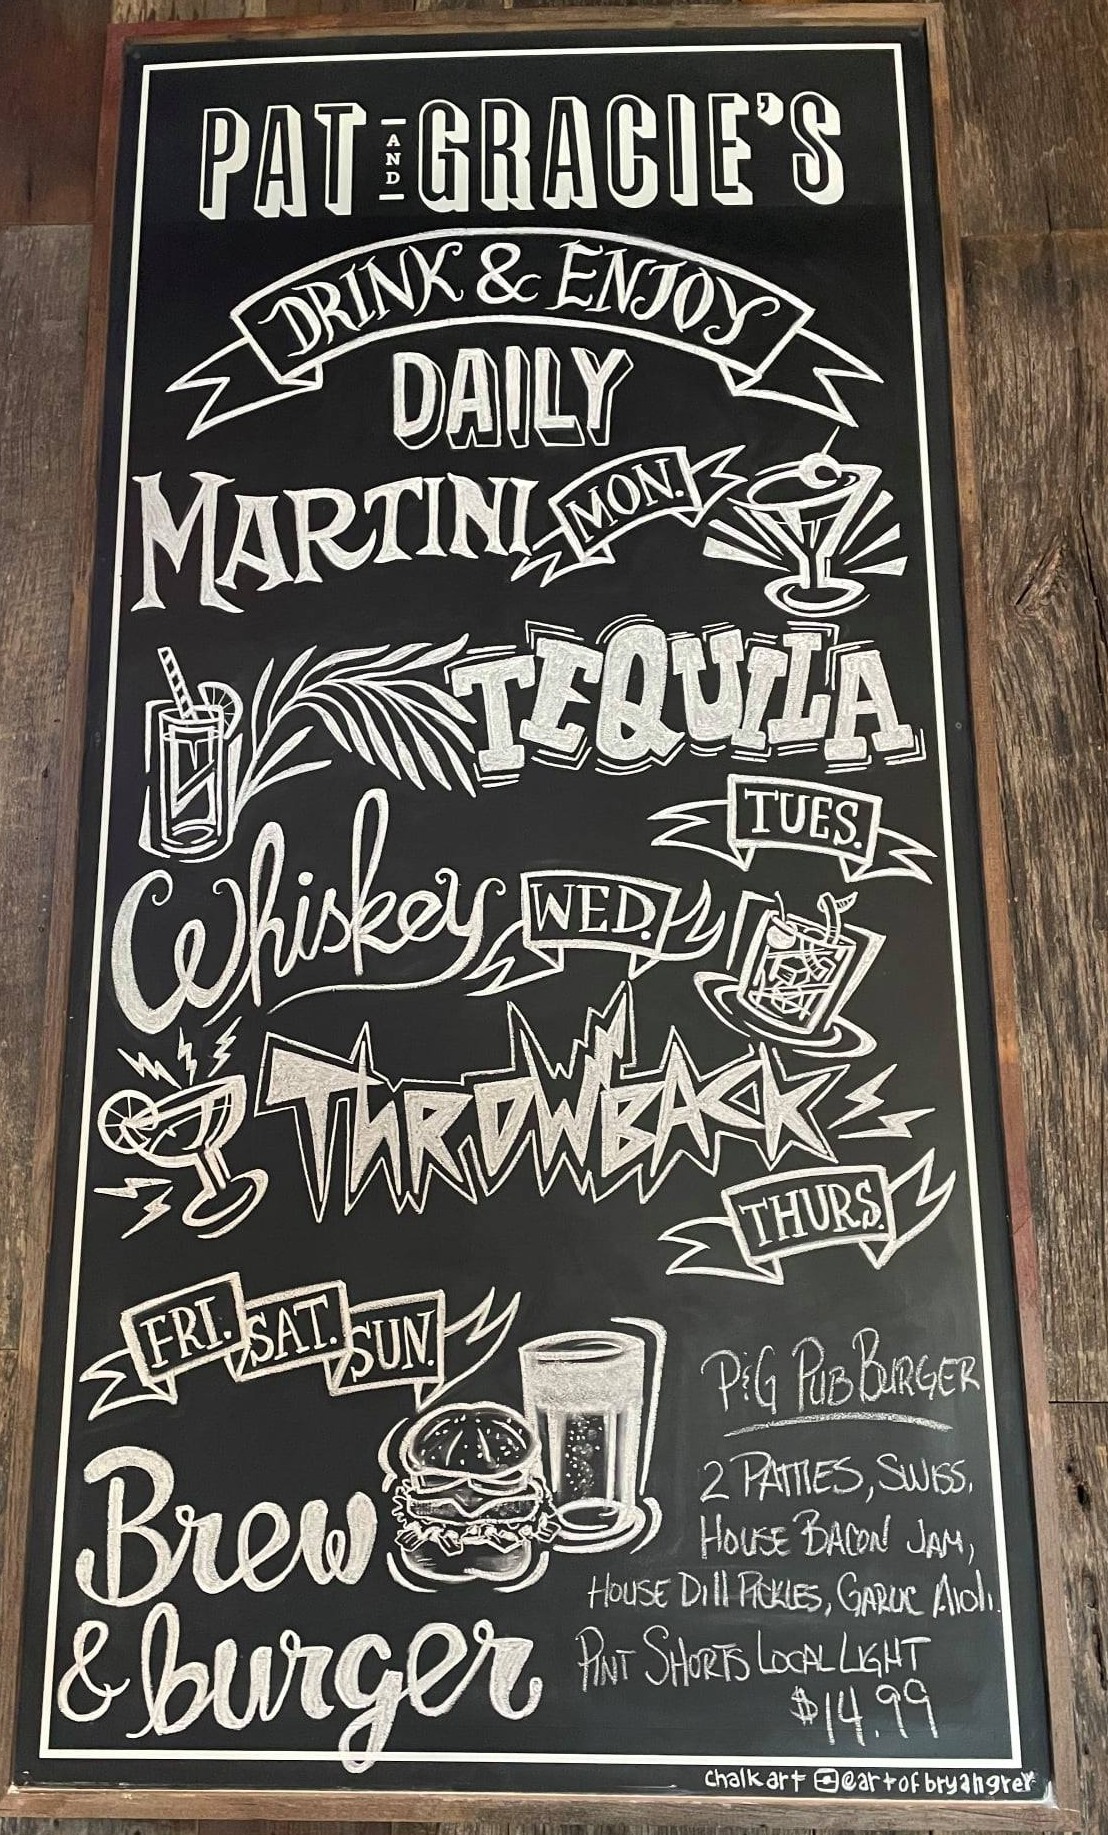 PAT AND GRACIE'S
DRINK & ENJOY
DAILY
MARTINI MON.
TEQUILA
TUES.
Whiskey WED.
THROWBACK
THURS.
FRI. SAT. SUN.
Brew
& burger
P&G PUB BURGER
2 PATTIES, SWISS,
HOUSE BACON JAM,
HOUSE Dill PICKLES, GARLIC AIOLi.
PINT SHORTS LOCAL LIGHT
$14.99
chalk art @artofbryangrer